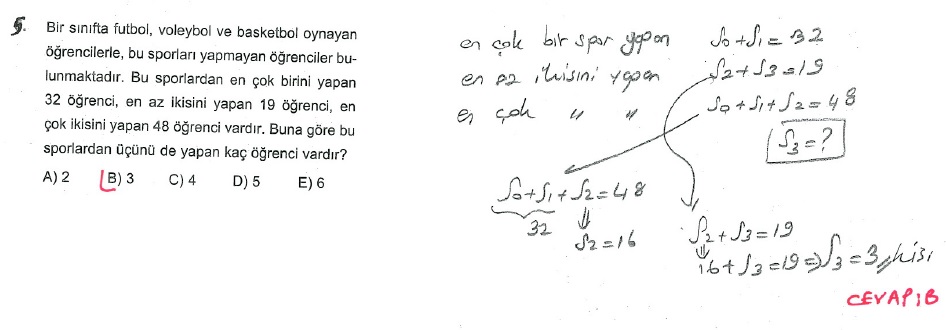 5. Bir sınıfta futbol, voleybol ve basketbol oynayan
öğrencilerle, bu sporları yapmayan öğrenciler bu-
lunmaktadır. Bu sporlardan en çok birini yapan
32 öğrenci, en az ikisini yapan 19 öğrenci, en
çok ikisini yapan 48 öğrenci vardır. Buna göre bu
sporlardan üçünü de yapan kaç öğrenci vardır?
A) 2 B) 3 C) 4 D) 5 E) 6
en çok bir spor yapan S0+S1=32
en az ikisini yapan S2+S3=19
en çok " " S0+S1+S2=48
S3=?
S0+S1+S2=48
32 ⇓
S2=16
S2+S3=19
⇓
16+S3=19⇒S3=3 kişi
CEVAP:B